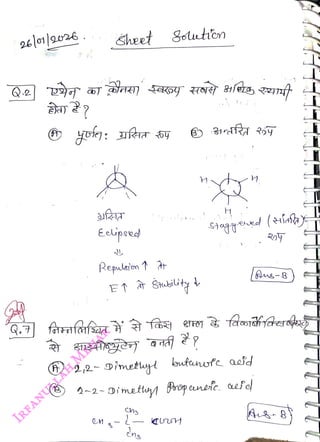 26/01/2026. Sheet Solution
Q.2 एथेन का कौनसा स्वरूप सबसे अधिक स्थायी
होता है?
(A) पूर्णत: ग्रसित रूप (B) अन्तरित रूप
H H
H
ग्रसित
Eclipsed
Staggered (सांतरित)
रूप
⇓
Repulsion ↑ से
E ↑ से Stability ↓
Ans-B
Q.7 निम्नलिखित में से किस अम्ल के
से आइसोब्यूटेन बनती है?
(A) 2,2- Dimethyl butanoic acid
(B) 2-2- Dimethyl Propanoic acid
CH3
CH3 - C - COOH
CH3
Ans-B